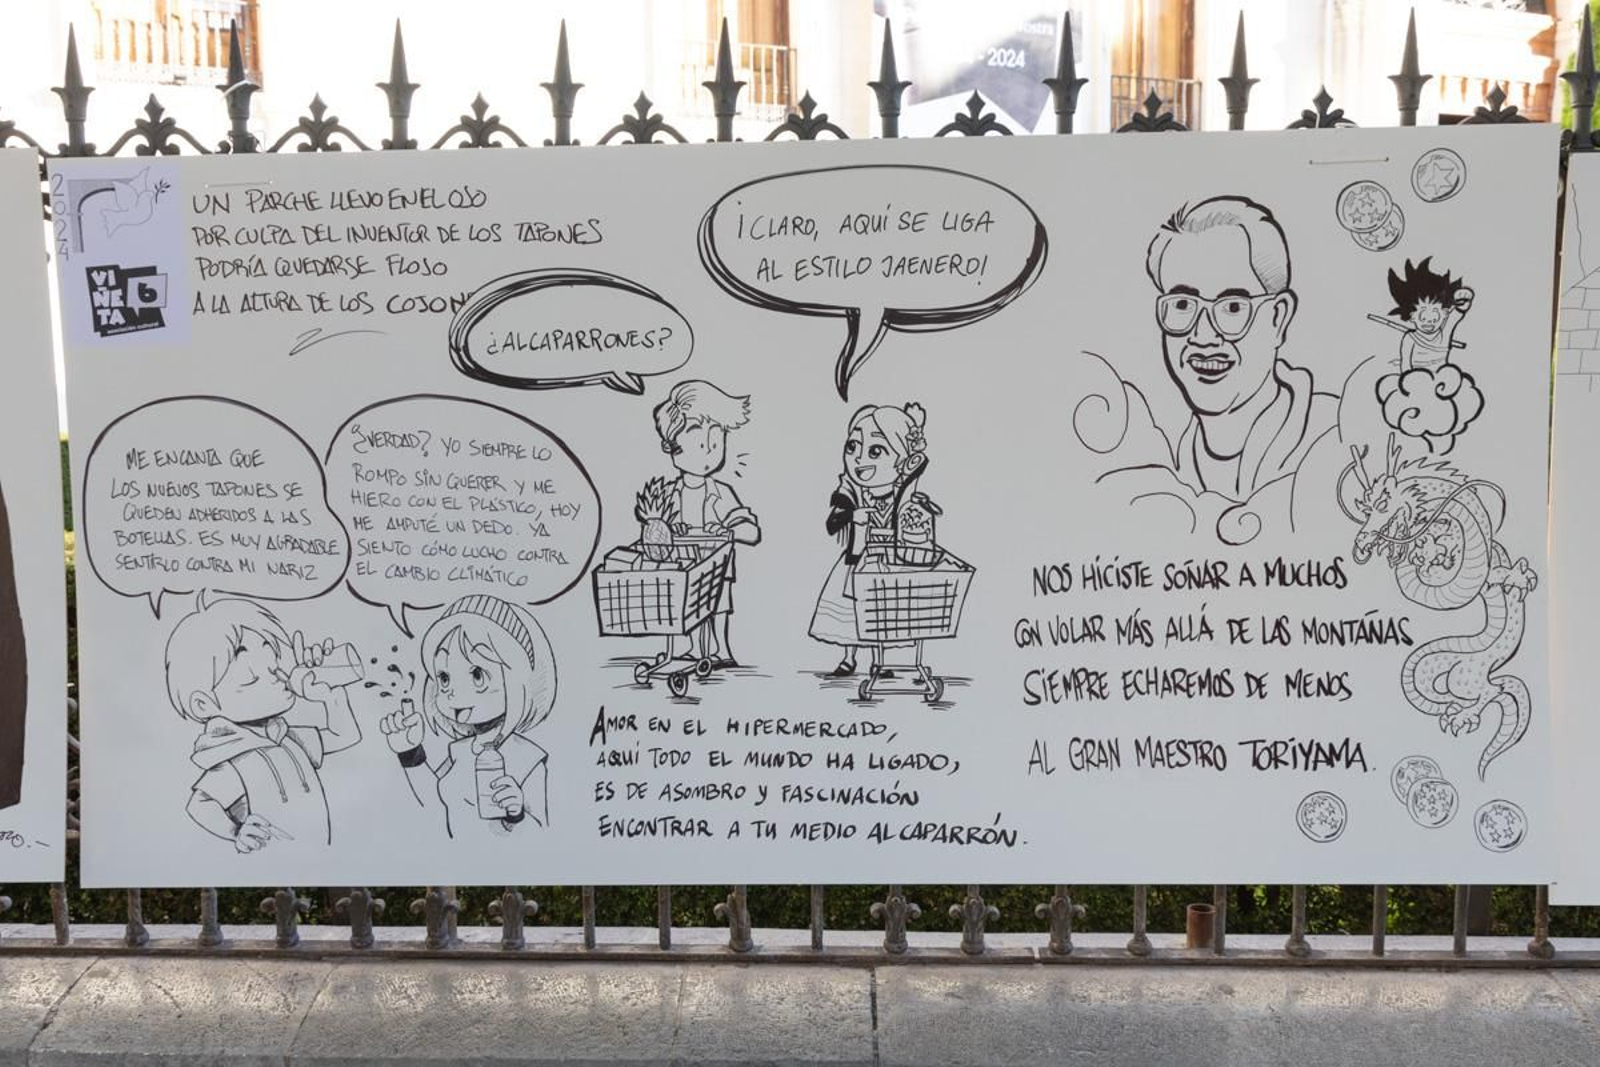 2024
VIÑETA 6
asociación cultural
UN PARCHE LLEVO EN EL OJO
POR CULPA DEL INVENTOR DE LOS TAPONES
PODRÍA QUEDARSE FLOJO
A LA ALTURA DE LOS COJON
¿ALCAPARRONES?
¡CLARO, AQUÍ SE LIGA
AL ESTILO JAENERO!
ME ENCANTA QUE
LOS NUEVOS TAPONES SE
QUEDEN ADHERIDOS A LAS
BOTELLAS. ES MUY AGRADABLE
SENTIRLO CONTRA MI NARIZ
¿VERDAD? YO SIEMPRE LO
ROMPO SIN QUERER Y ME
HIERO CON EL PLÁSTICO, HOY
ME AMPUTÉ UN DEDO. YA
SIENTO CÓMO LUCHO CONTRA
EL CAMBIO CLIMÁTICO
AMOR EN EL HIPERMERCADO,
AQUÍ TODO EL MUNDO HA LIGADO,
ES DE ASOMBRO Y FASCINACIÓN
ENCONTRAR A TU MEDIO ALCAPARRÓN.
NOS HICISTE SOÑAR A MUCHOS
CON VOLAR MÁS ALLÁ DE LAS MONTAÑAS
SIEMPRE ECHAREMOS DE MENOS
AL GRAN MAESTRO TORIYAMA.
- 2024